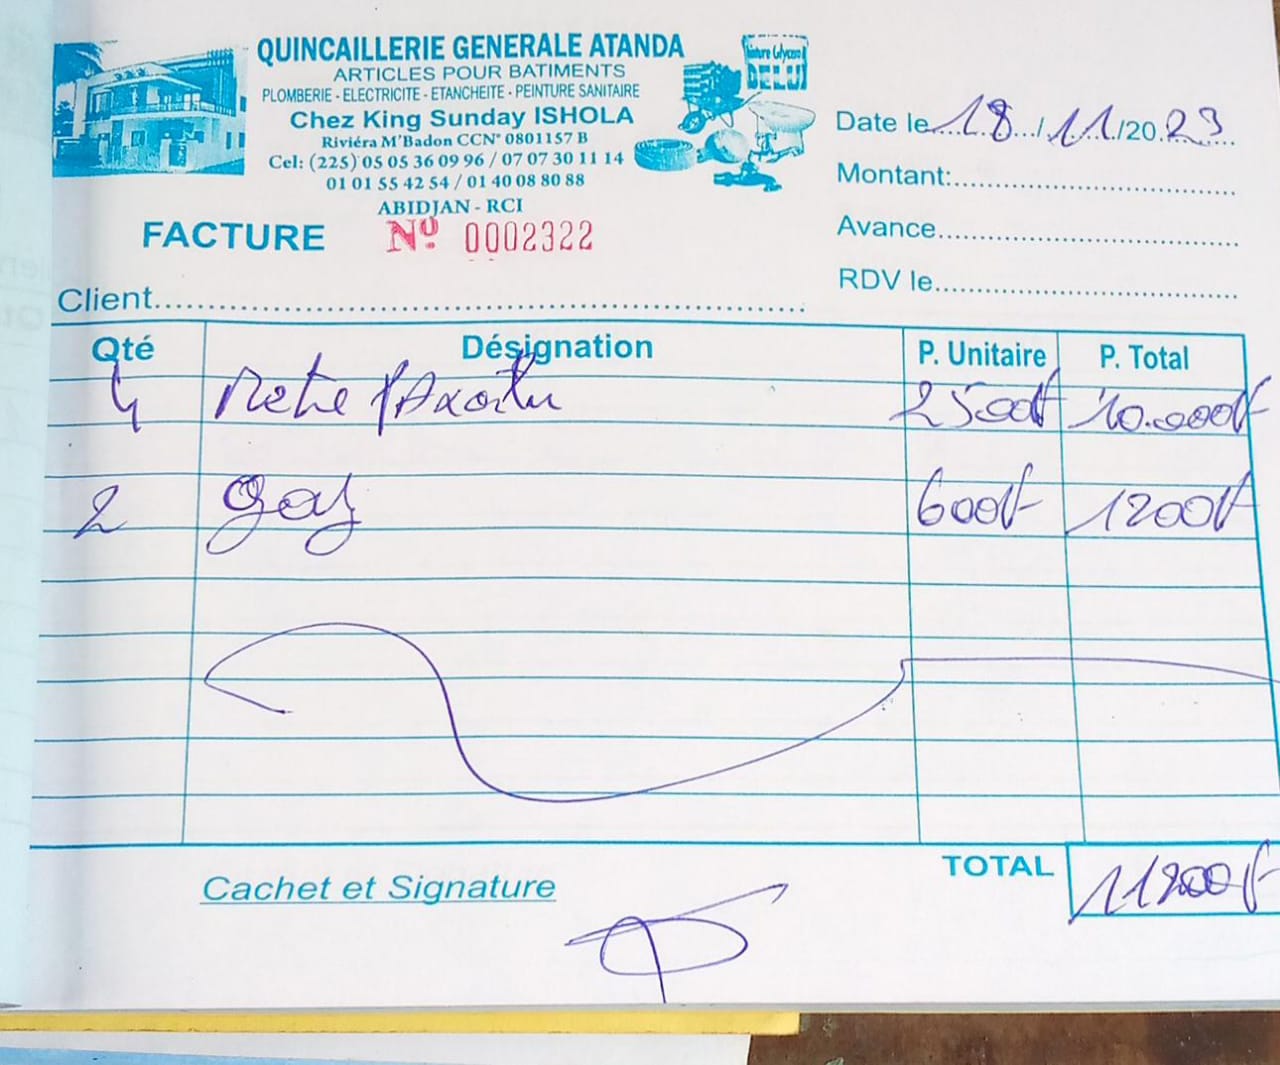 QUINCAILLERIE GENERALE ATANDA
ARTICLES POUR BATIMENTS
PLOMBERIE - ELECTRICITE - ETANCHEITE - PEINTURE SANITAIRE
Chez King Sunday ISHOLA
Riviéra M'Badon CCN° 0801157 B
Cel: (225) 05 05 36 09 96 / 07 07 30 11 14
01 01 55 42 54 / 01 40 08 80 88
ABIDJAN - RCI
DELUX
FACTURE N° 0002322
Date le 18/11/2023
Montant:
Avance
RDV le
Client
Qté Désignation P. Unitaire P. Total
4 2500f 10.000f
2 gaz 600f 1200f
TOTAL 11200f
Cachet et Signature